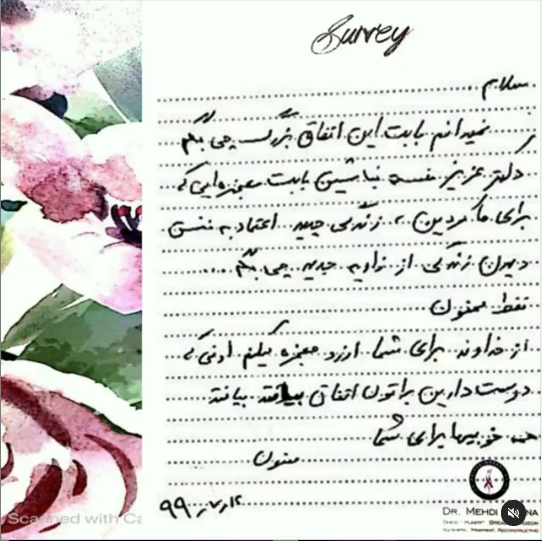 Surrey
سلام
نمیدانم بابت این اتفاق بزرگ چی بگم
دکتر عزیز خسته نباشین بابت معجزه‌ایی که
برای ما کردین، زندگی جدید اعتماد به نفس
دیدن زندگی از زاویه جدید چی بگم ....
فقط ممنون
از خداوند برای شما آرزو معجزه میکنم اونی که
دوست دارین براتون اتفاق بیافته
همه خوبیها برای شما
ممنون
99
DR. MEHDI
Scanned with Ca